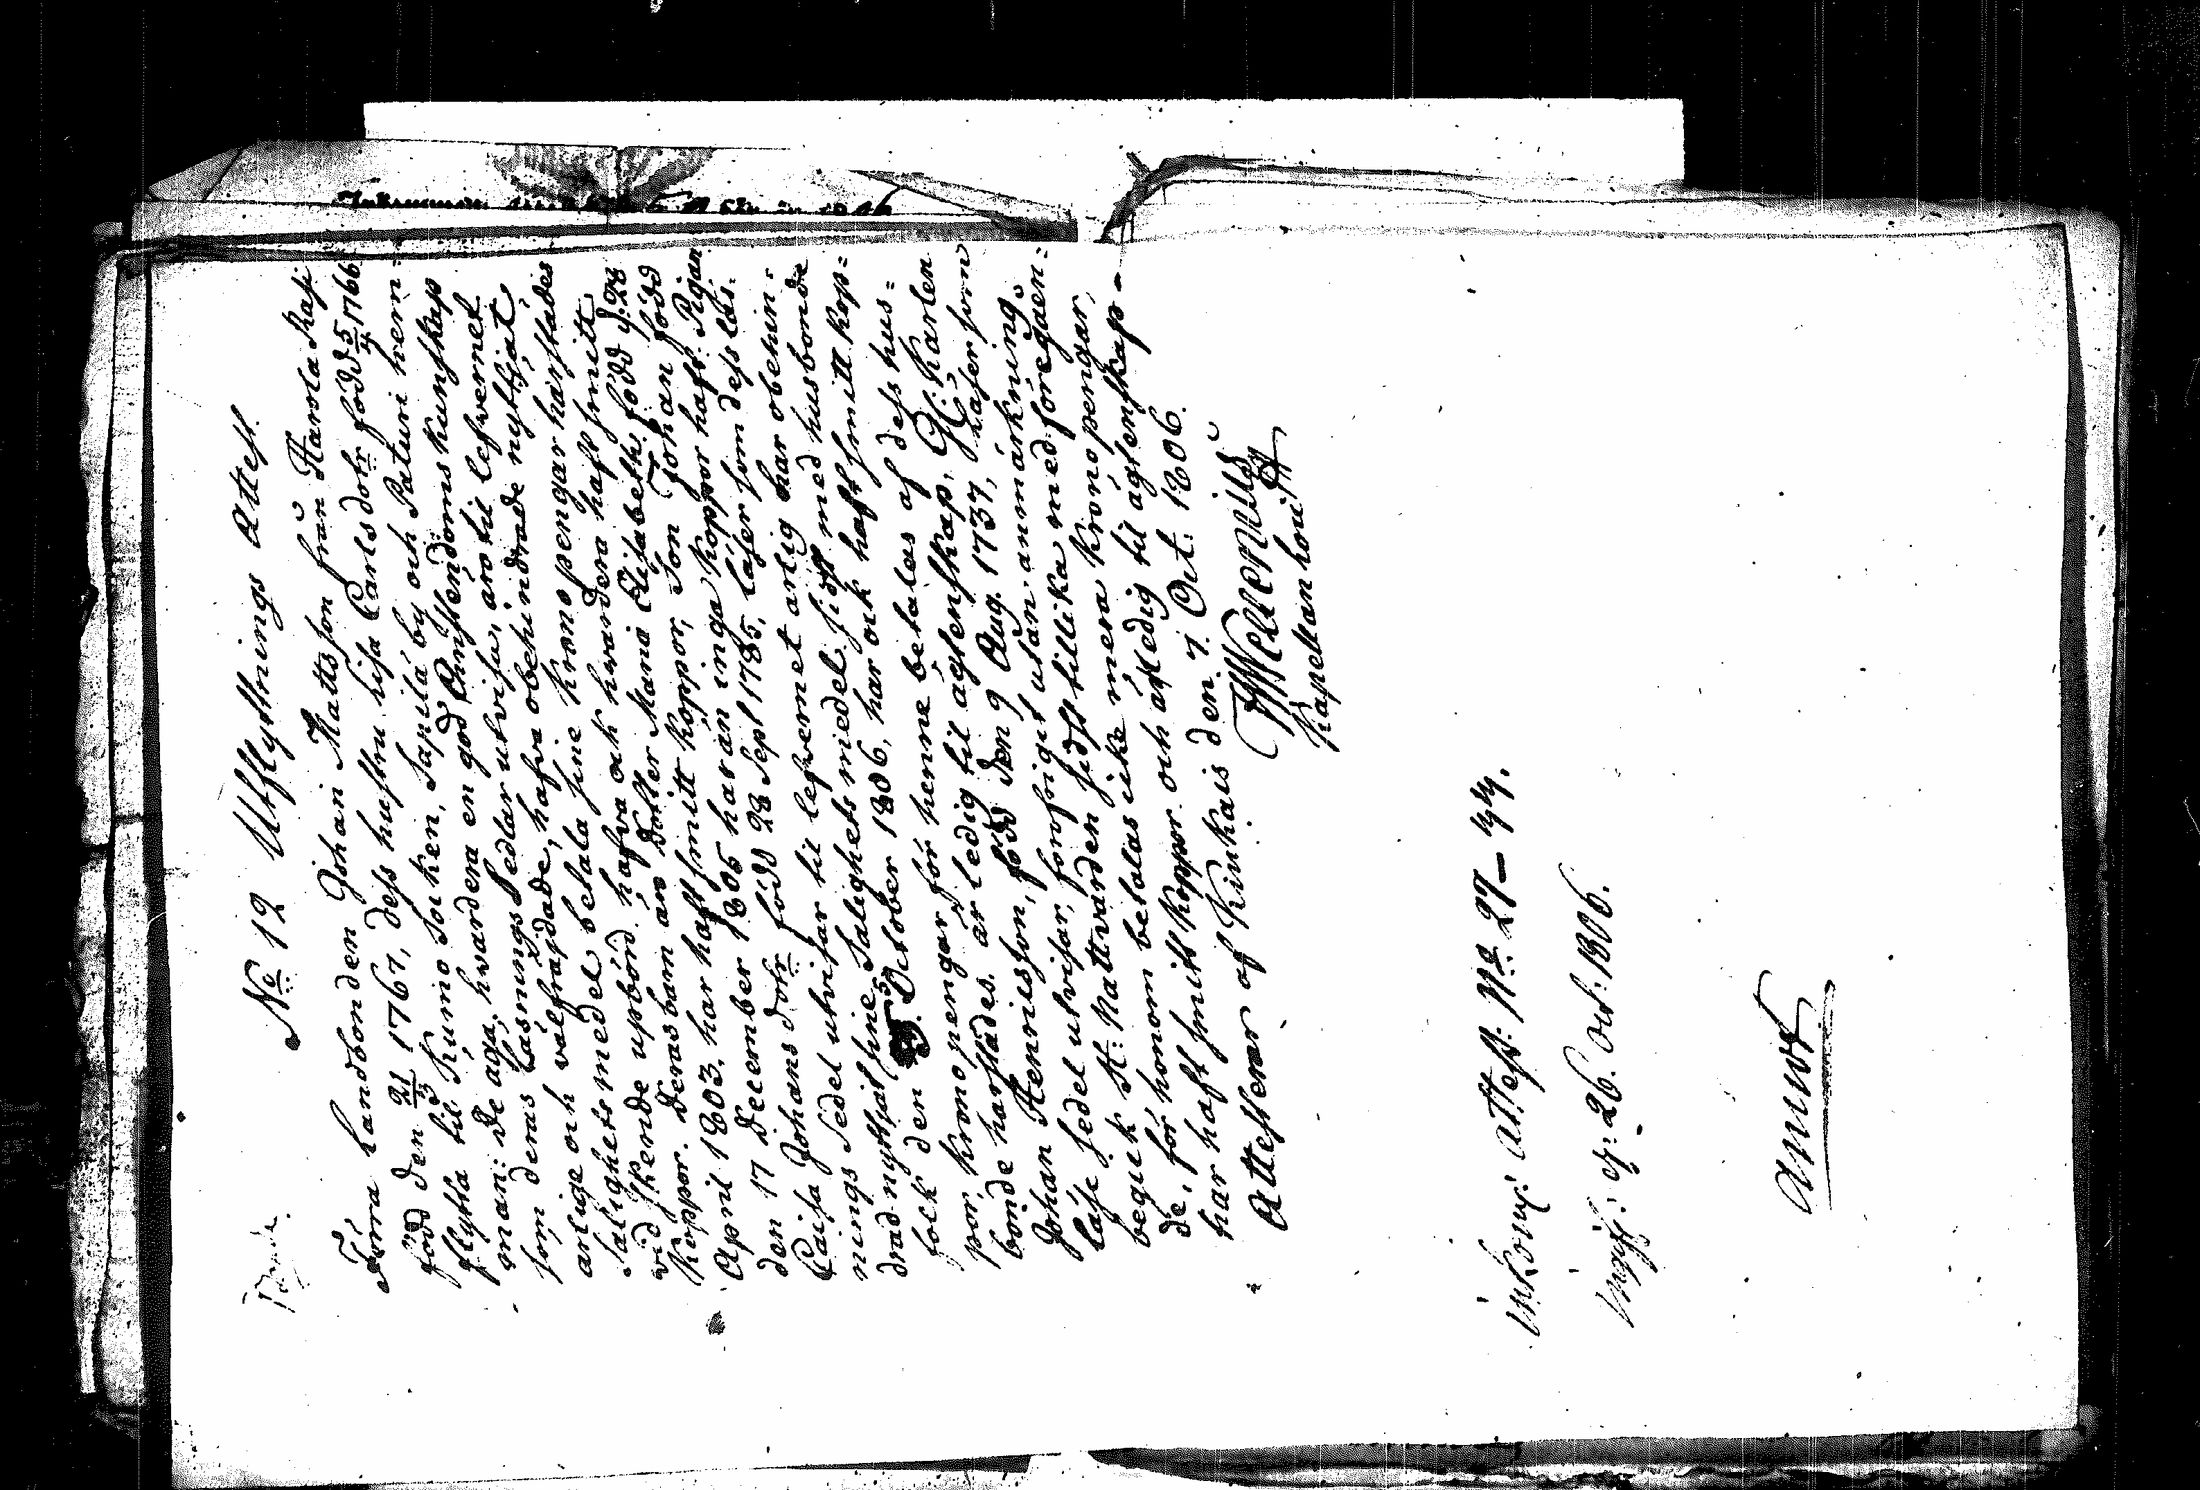 No 12 Utflyttnings Attest.
Förra Landbonden Johan Mattsson från Harola Rasi
född den 21/3 1767, dess hustru Lisa Carlsdotr född 5/4 1766
flytta til Kumo Socken, Sapilä by och Paturi hem=
man: De äga, hwardera en god Christendoms kunskap
som deras Läsnings Sedlar utvisa, äro til lefvernet
ärlige och välfräjdade, hafva obehindrade nyttjat
Salighets medel betala sine Krono pengar härstädes
vid skende upbörd, hafva ock hvardera haft smitt
Koppor. Deras barn äro Dotter Maria Elisabeth född d. 28
April 1803, har haft smitt koppor, Son Johan född
den 17 December 1805 har än inga koppor haft. Pigan
Caisa Johans dotr född 28 Sept 1785, läser som dess läs=
nings Sedel utvisar til lefvernet ärlig har obehin=
drad nyttjat sine Salighets medel, sidst med husbonde
folck den 5 October 1806, har ock haft smitt kop=
por, krono pengar för henne betalas af dess hus=
bonde härstädes. är ledig til ägtenskap, Gl: Karlen
Johan Henricsson, född den 9 Aug. 1737, läser som
läse sedel utvisar, försigit utan anmärkning
begick H: Nattvarden sidst tillika med föregåen=
de, för honom betalas icke mera Krono pengar,
har haft smitt koppor och är ledig til ägtenskap-
Attesterar af Kiukais den 7 Oct: 1806.
Kapellan
inkom: Attest: No 27-44.
d. 26. Oct: 1806.